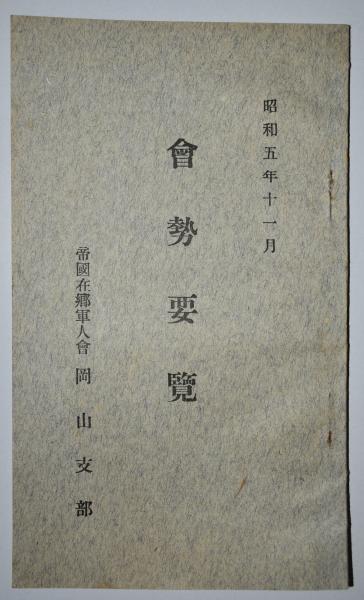 昭和五年十一月
會勢要覽
帝國在鄕軍人會 岡山支部